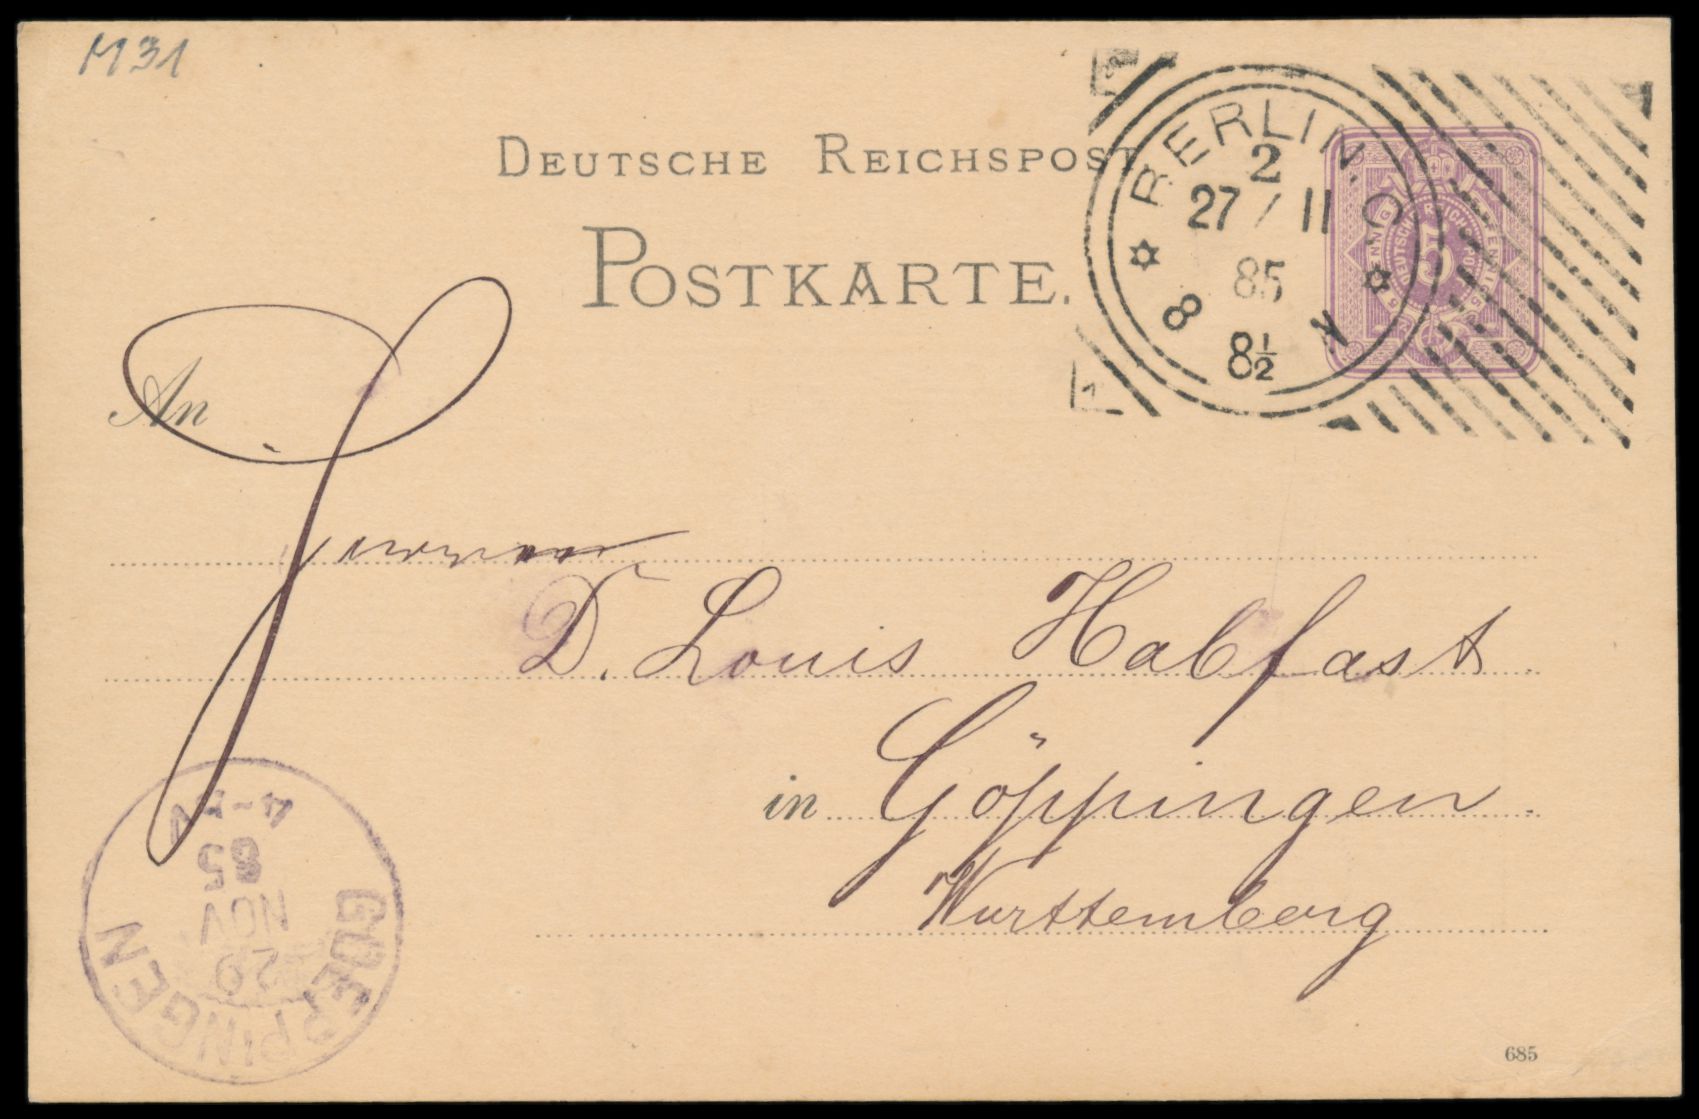 M31
DEUTSCHE REICHSPOST
POSTKARTE.
BERLIN, C.
2
27 / 11
85
8½
8 K
An
Herrn
D. Louis Habfast
in Göppingen.
Wurttemberg
GOEPPINGEN
29
NOV
85
685